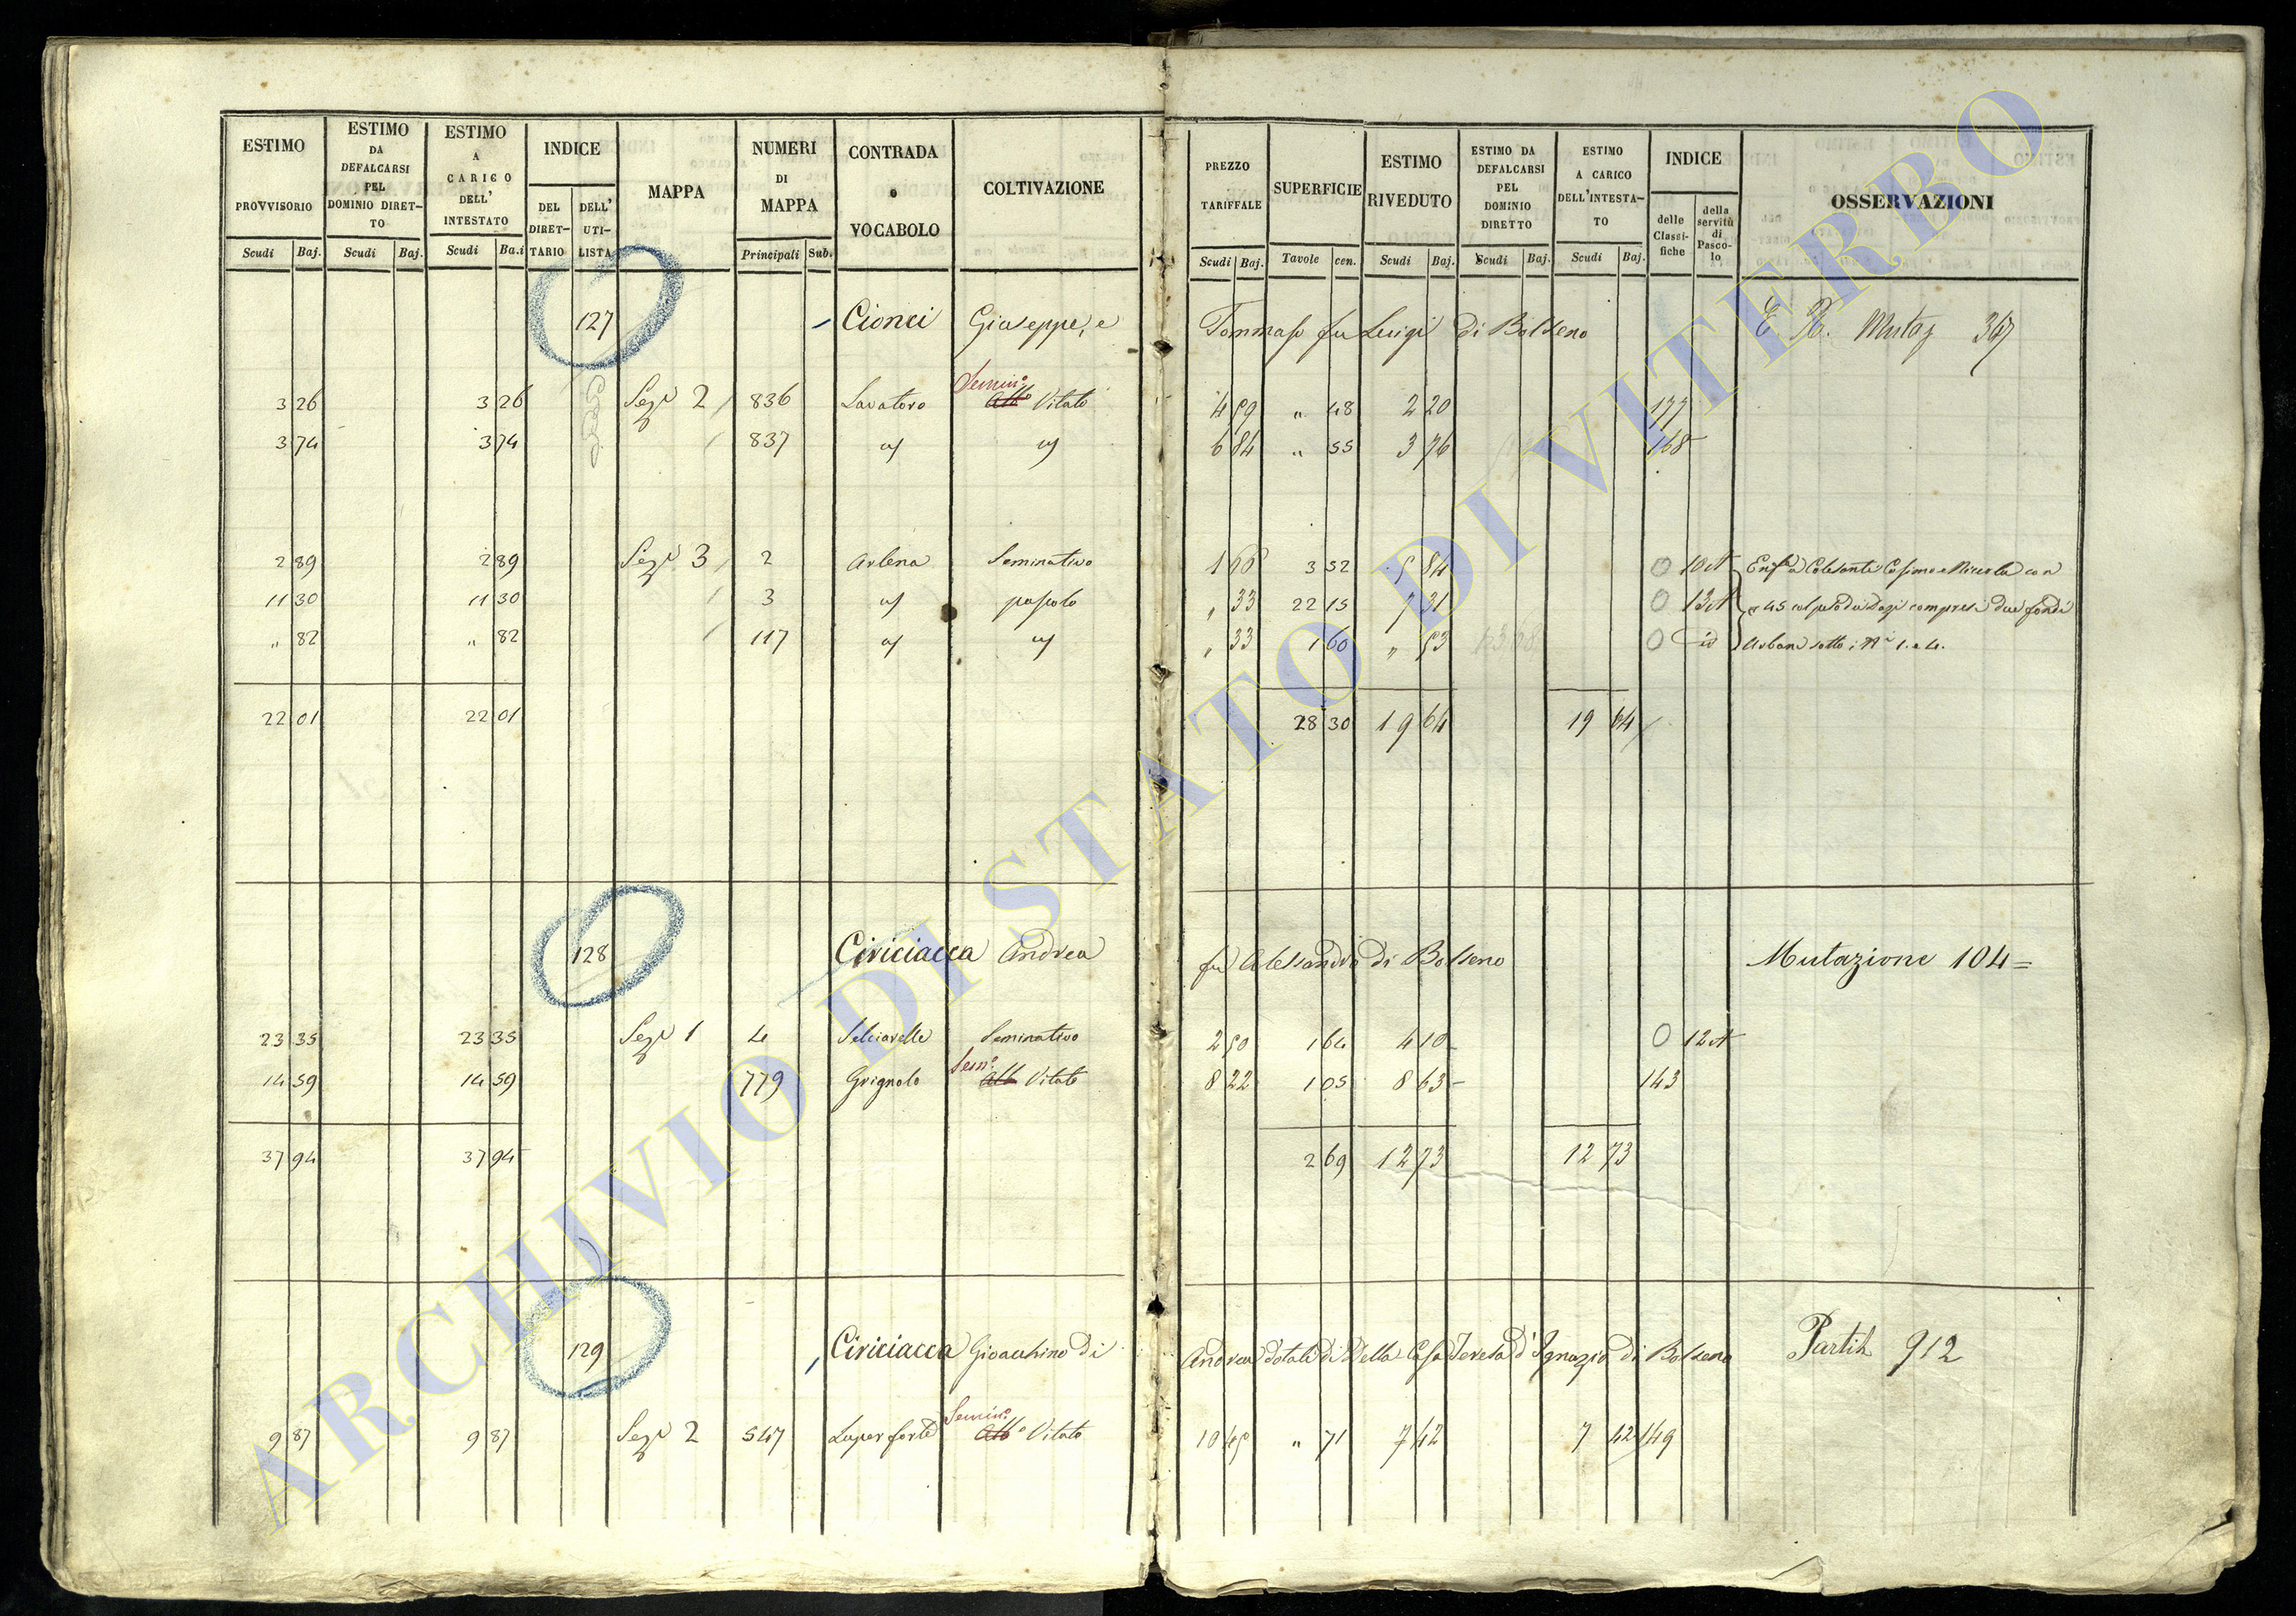 ESTIMO PROVVISORIO | ESTIMO DA DEFALCARSI PEL DOMINIO DIRETTO | ESTIMO A CARICO DELL' INTESTATO | INDICE | MAPPA | NUMERI DI MAPPA | CONTRADA o VOCABOLO | COLTIVAZIONE | PREZZO TARIFFALE | SUPERFICIE | ESTIMO RIVEDUTO | ESTIMO DA DEFALCARSI PEL DOMINIO DIRETTO | ESTIMO A CARICO DELL'INTESTATO | INDICE | OSSERVAZIONI
DEL DIRETTARIO | DELL' UTILISTA | delle Classifiche | della servitù di Pascolo
Scudi | Baj. | Scudi | Baj. | Scudi | Ba.i | Principali | Sub. | Scudi | Baj. | Tavole | cen. | Scudi | Baj. | Scudi | Baj. | Scudi | Baj.
127 Cionci Giuseppe, e Tommaso fu Luigi di Bolseno Mutaz 367
Semin.o
3 26 | 3 26 | Sez. 2 | 836 | Lavatoro | Vitato | 4 59 | " 48 | 2 20 | 177
3 74 | 3 74 | 837 | 6 84 | " 55 | 3 76 | 168
2 89 | 2 89 | Sez. 3 | 2 | Arlena | Seminativo | 1 66 | 3 52 | 5 84 | 0 | 10 A
11 30 | 11 30 | 3 | pascolo | " 33 | 22 15 | 7 31 | 0 | 13 A
" 82 | " 82 | 117 | " 33 | 1 60 | " 53 | 0 | id | Urbani sotto i N.i 1. e 4.
22 01 | 22 01 | 28 30 | 19 64 | 19 64
128 Ciriciacca Andrea fu Alessandro di Bolseno Mutazione 104=
23 35 | 23 35 | Sez. 1 | 4 | Selciarelle | Seminativo | 2 50 | 1 64 | 4 10 | 0 | 12 A
Sem.o
14 59 | 14 59 | 779 | Grignolo | Vitato | 8 22 | 1 05 | 8 63 | 143
37 94 | 37 94 | 2 69 | 12 73 | 12 73
129 Ciriciacca Gioacchino di Andrea dotale di Della Casa Teresa d'Ignazio di Bolseno Partit. 912
Semin.o
9 87 | 9 87 | Sez. 2 | 547 | Luper forte | Vitato | 10 45 | " 71 | 7 42 | 7 42 | 149
ARCHIVIO DI STATO DI VITERBO